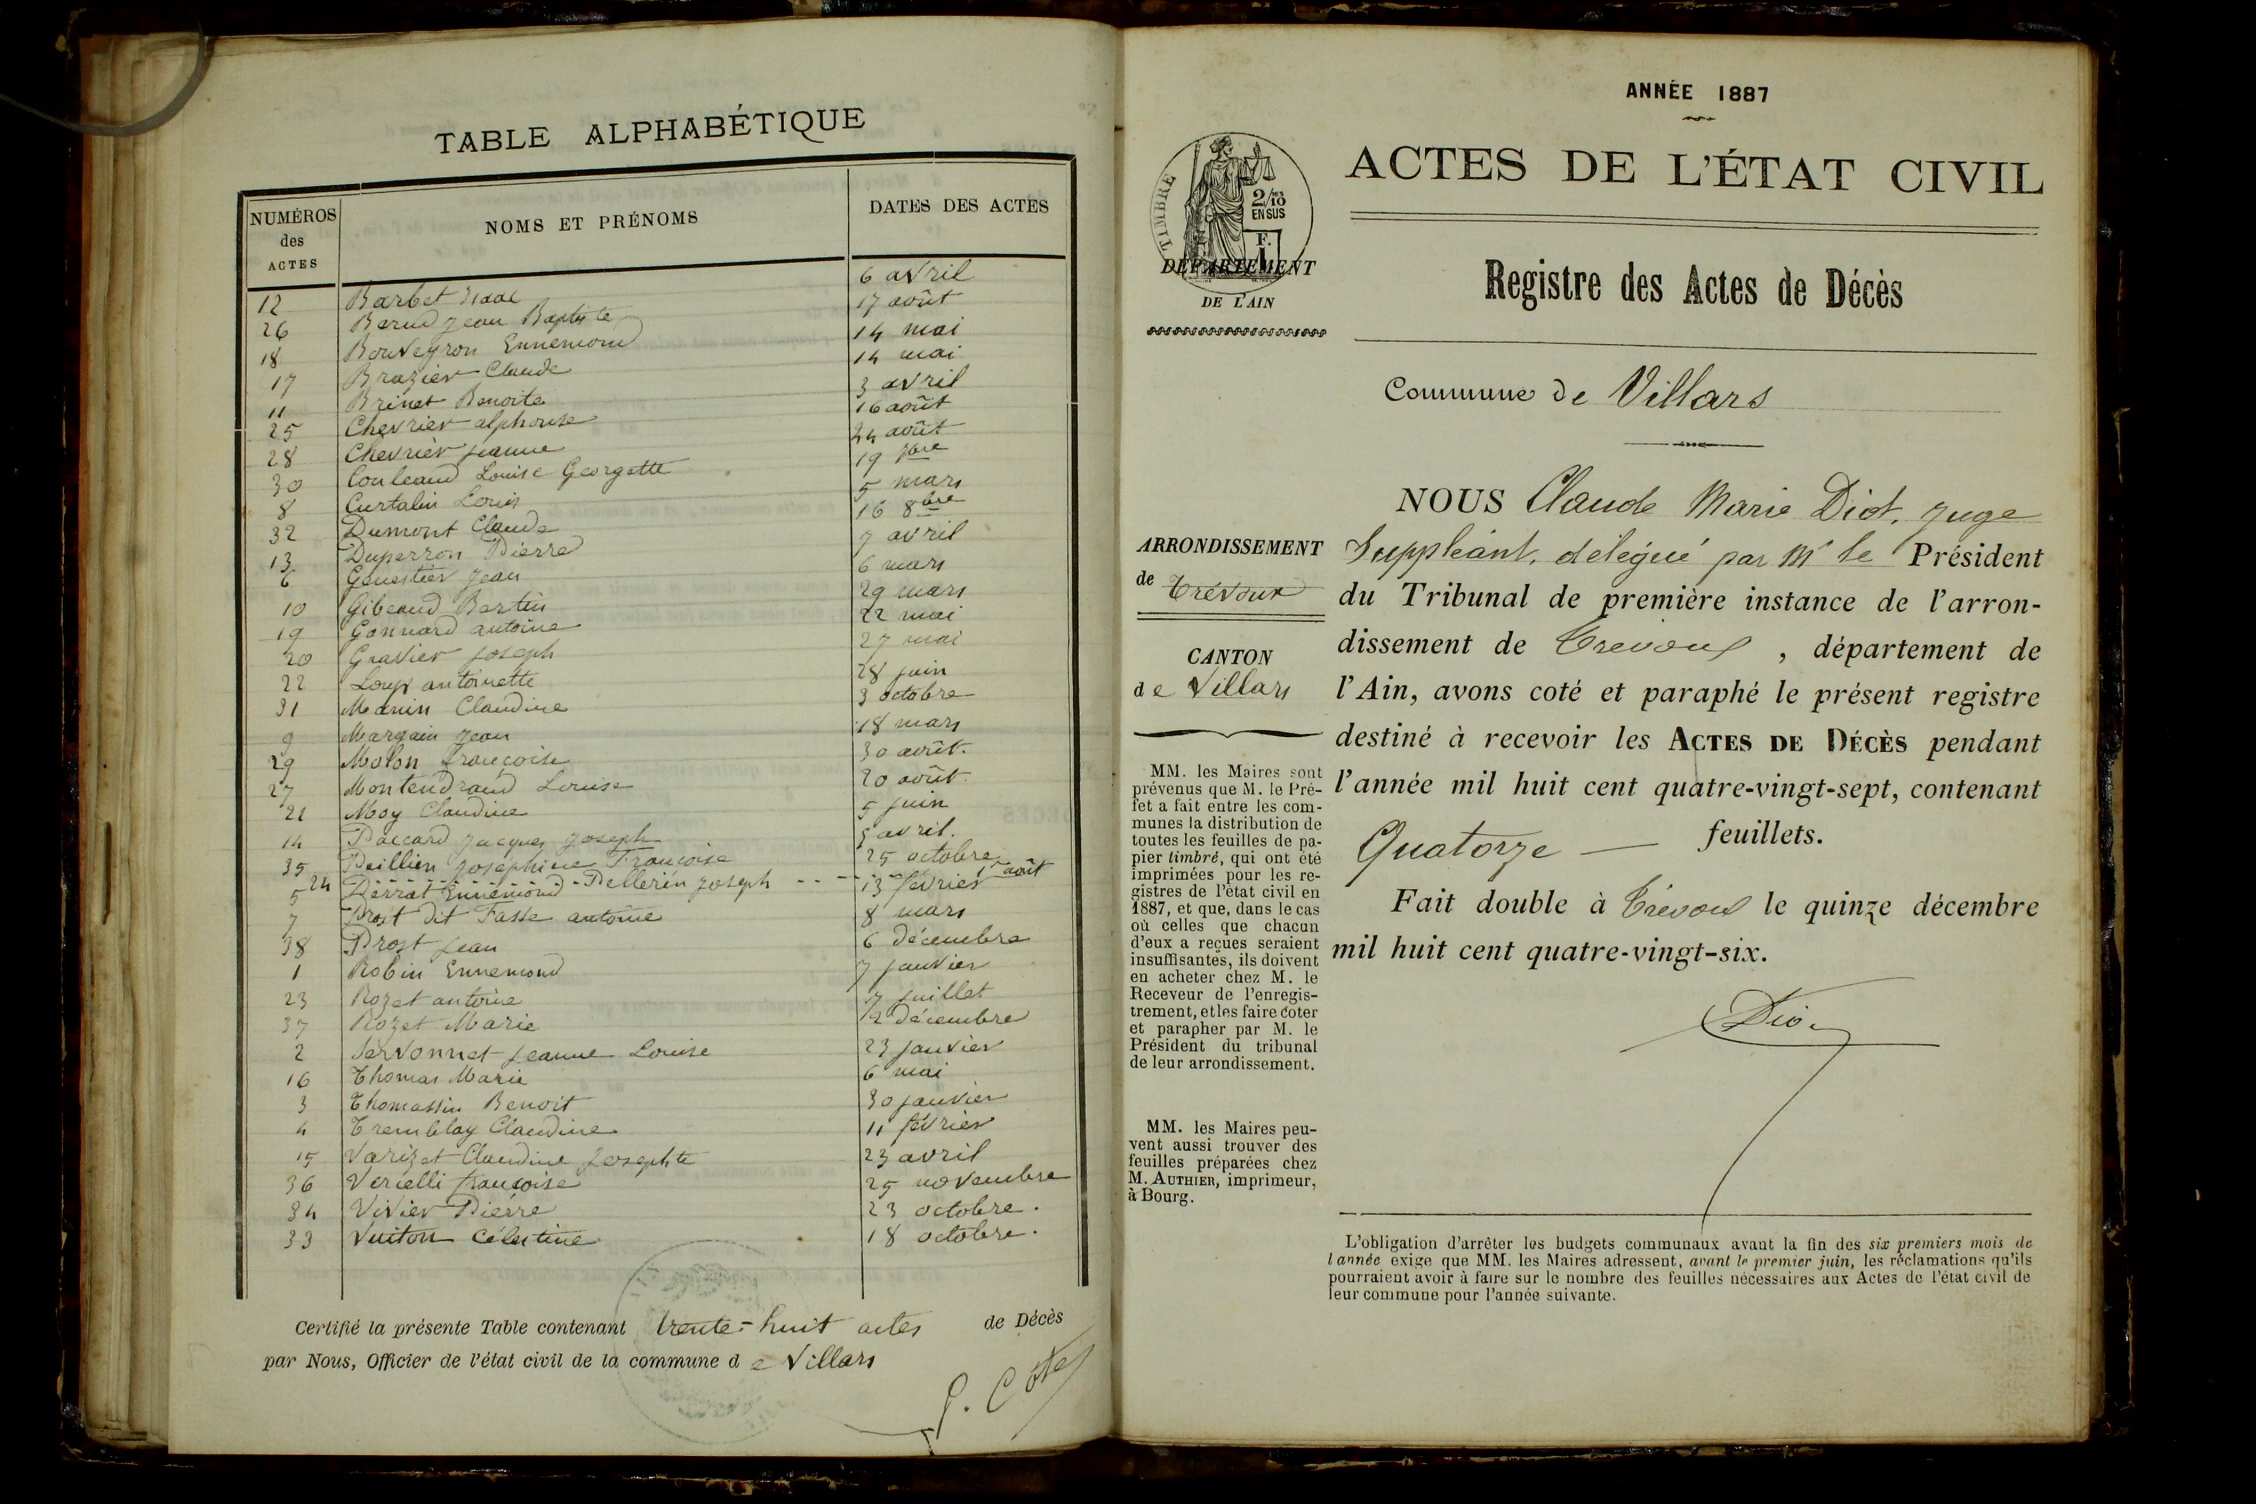 TABLE ALPHABÉTIQUE
NUMÉROS des ACTES NOMS ET PRÉNOMS DATES DES ACTES
12 Barbet Isaac 6 avril
26 Berud Jean Baptiste 17 août
18 Bouveyron Ennemond 14 mai
17 Brazier Claude 14 mai
11 Brinet Benoite 3 avril
25 Chevrier alphonse 16 août
28 Chevrier jeanne 24 août
30 Couleaud Louise Georgette 19 7bre
8 Curtalin Louis 5 mars
32 Dumont Claude 16 8bre
13 Duperron Pierre 7 avril
6 Genestier Jean 6 mars
10 Gibeaud Bertin 29 mars
19 Gonnard antoine 22 mai
20 Gravier Joseph 27 mai
22 Loup antoinette 28 juin
31 Manin Claudine 3 octobre
9 Margain Jean 18 mars
29 Molon françoise 30 août.
27 Montendraud Louise 20 août
21 Moy Claudine 5 juin
14 Paccard Jacques Joseph 5 avril.
35 Peillien Joséphine Françoise 25 octobre
24 Pellerin Joseph août
5 Perrat Ennemond 13 février
7 Prost dit Fasse antoine 8 mars
38 Prost jean 6 décembre
1 Robin Ennemond 7 janvier
23 Rozet antoine 17 juillet
37 Rozet Marie 2 décembre
2 Servonnet jeanne Louise 23 janvier
16 Thomas Marie 6 mai
3 Thomassin Benoit 30 janvier
4 Tremblay Claudine 11 février
15 Varizet Claudine josephte 23 avril
36 Verielli françoise 25 novembre
34 Vivier Pierre 23 octobre.
33 Vuiton Célestine 18 octobre.
Certifié la présente Table contenant trente-huit actes de Décès
par Nous, Officier de l'état civil de la commune d e Villars
ANNÉE 1887
TIMBRE
2/10 EN SUS
F. 1
ACTES DE L'ÉTAT CIVIL
DÉPARTEMENT
DE L'AIN
Registre des Actes de Décès
Commune de Villars
ARRONDISSEMENT
de Trévoux
CANTON
de Villars
MM. les Maires sont
prévenus que M. le Pré-
fet a fait entre les com-
munes la distribution de
toutes les feuilles de pa-
pier timbré, qui ont été
imprimées pour les re-
gistres de l'état civil en
1887, et que, dans le cas
où celles que chacun
d'eux a reçues seraient
insuffisantes, ils doivent
en acheter chez M. le
Receveur de l'enregis-
trement, et les faire coter
et parapher par M. le
Président du tribunal
de leur arrondissement.
MM. les Maires peu-
vent aussi trouver des
feuilles préparées chez
M. AUTHIER, imprimeur,
à Bourg.
NOUS Claude Marie Diot, juge
Suppléant, délégué par Mr le Président
du Tribunal de première instance de l'arron-
dissement de Trévoux, département de
l'Ain, avons coté et paraphé le présent registre
destiné à recevoir les ACTES DE DÉCÈS pendant
l'année mil huit cent quatre-vingt-sept, contenant
Quatorze — feuillets.
Fait double à Trévoux le quinze décembre
mil huit cent quatre-vingt-six.
L'obligation d'arrêter les budgets communaux avant la fin des six premiers mois de
l'année exige que MM. les Maires adressent, avant le premier juin, les réclamations qu'ils
pourraient avoir à faire sur le nombre des feuilles nécessaires aux Actes de l'état civil de
leur commune pour l'année suivante.